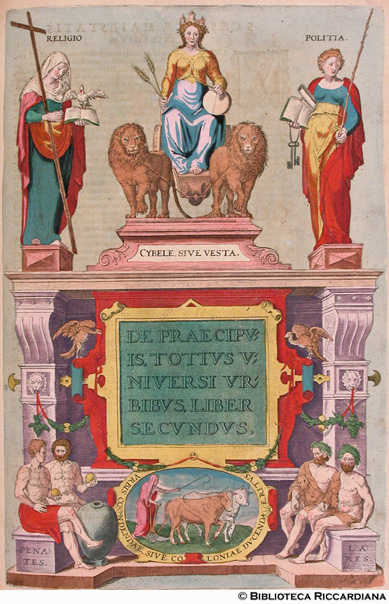 RELIGIO
POLITIA.
CYBELE, SIVE VESTA.
DE PRAECIPV=
IS, TOTIVS V=
NIVERSI VR=
BIBVS, LIBER
SECVNDVS.
VRBIS CONDENDAE, SIVE CO LONIAE DVCENDAE
PENA=
TES.
LA=
RES.
© BIBLIOTECA RICCARDIANA